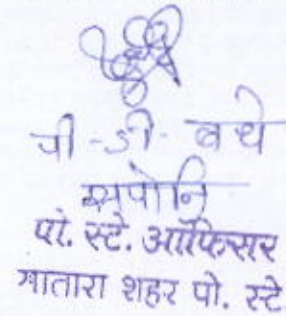 पी-डी- बधे
सपोनि
पो. स्टे. ऑफिसर
सातारा शहर पो. स्टे